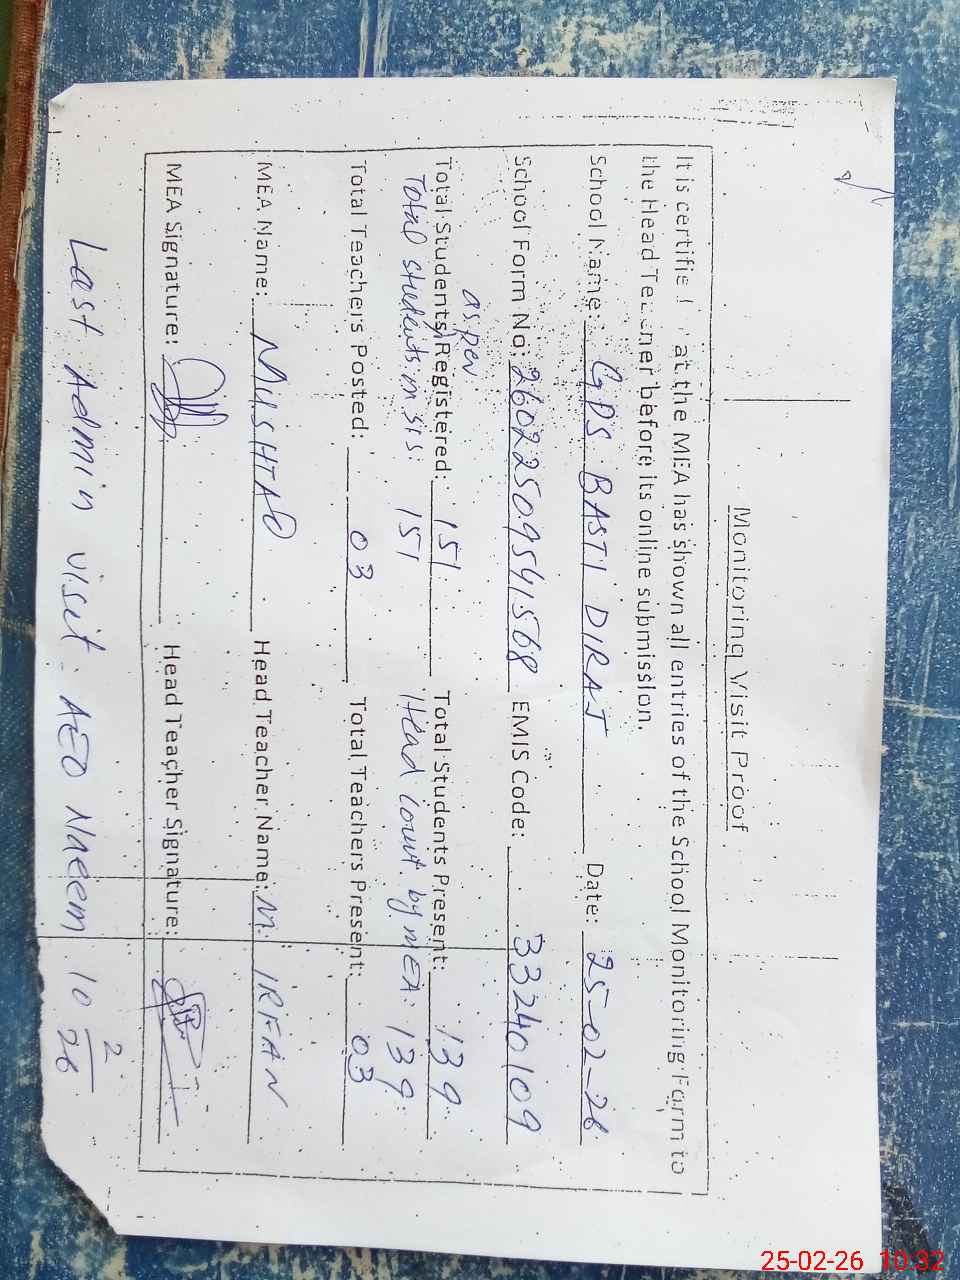 Monitoring Visit Proof
It is certifie at the MEA has shown all entries of the School Monitoring Form to
the Head Teacher before its online submission.
School Name: GPS BASTI DIRAJ Date: 25-02-26
School Form No: 26022509541568 EMIS Code: 33240109
as per
Total Students Registered: 151 Total Students Present: 139
Total students in SIS: 151 Head count by MEA: 139
Total Teachers Posted: 03 Total Teachers Present: 03
MEA Name: MUSHTAQ Head Teacher Name: M. IRFAN
MEA Signature: Head Teacher Signature:
Last Admin visit: AEO Naeem 10 2/26
25-02-26 10:32